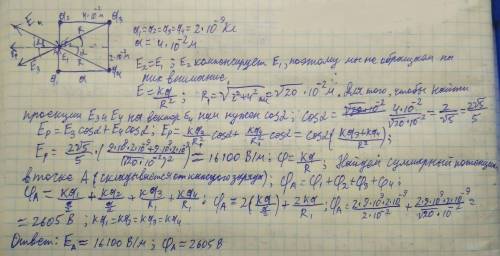 q₂ 4·10⁻² м q₃
q₁=q₂=q₃=q₄=2·10⁻⁹ Кл
a=4·10⁻² м
E₂=E₁; E₂ компенсирует E₁, поэтому мы не обращаем на
них внимание.
E=kq/R²; R₁=√(2²+4²)=√20·10⁻² м. Для того, чтобы найти
проекции E₃ и E₄ на вектор Eₚ нам нужен cosα; cosα=4·10⁻²/(√20·10⁻²)=2/√5=2√5/5
Eₚ=E₃cosα+E₄cosα; Eₚ=kq₃/R₁² cosα+kq₄/R₁² cosα=cosα((kq₃+kq₄)/R₁²);
Eₚ=2√5/5·((9·10⁹·2·10⁻⁹+9·10⁹·2·10⁻⁹)/(√20·10⁻²)²)≈16100 В/м; φ=kq/R; Найдем суммарный потенциал
в точке A (складывается от каждого заряда);
φA=φ₁+φ₂+φ₃+φ₄;
φA=kq₁/(a/2)+kq₂/(a/2)+kq₃/R₁+kq₄/R₁; φA=2(kq/(a/2))+2kq/R₁; φA=2·9·10⁹·2·10⁻⁹/(2·10⁻²)+2·9·10⁹·2·10⁻⁹/(√20·10⁻²)=
=2605 В; kq₁=kq₂=kq₃=kq₄
Ответ: EA=16100 В/м; φA=2605 В